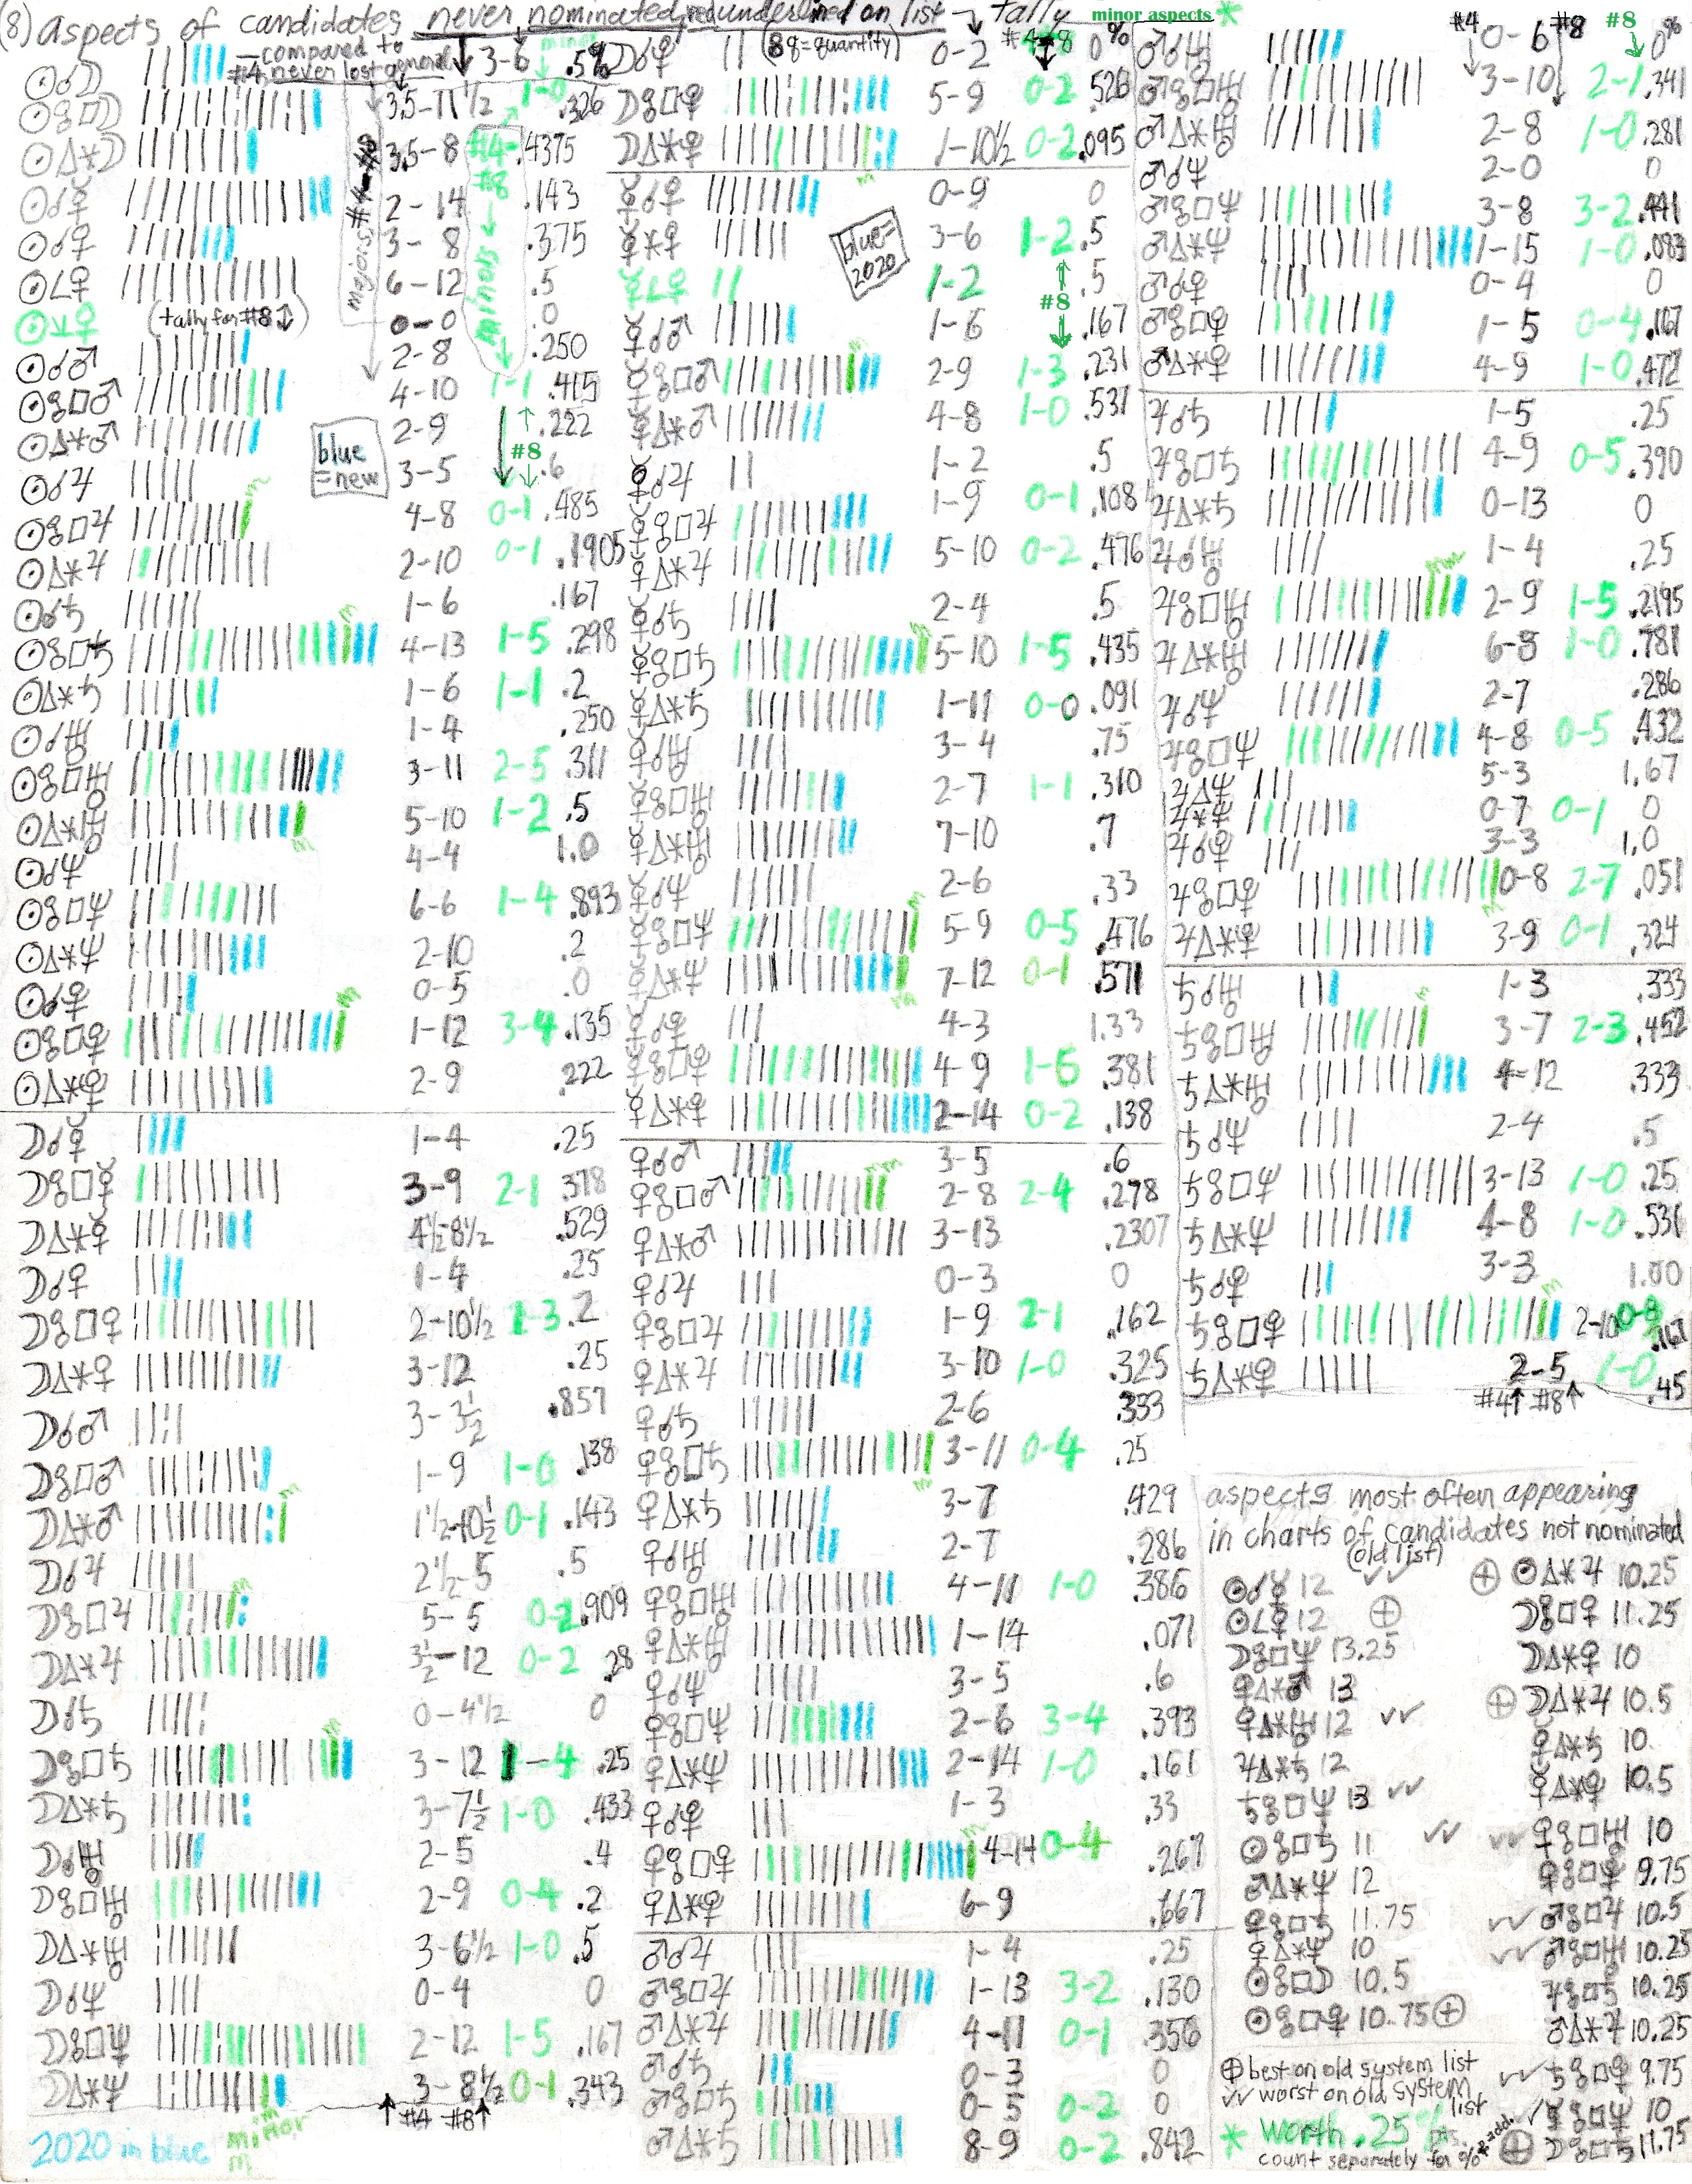 (8) aspects of candidates never nominated, red underlined on list → tally minor aspects *
— compared to #4, never lost general (8 q = quantity)
☉☌☽ 3-6 .5%
☉☍□☽ 3.5-11½ 1-0 .326
☉△⚹☽ 3.5-8 .4375
☉☌☿ 2-14 .143
☉☌♀ 3-8 .375
☉∠♀ 6-12 .5
(tally for #8 ↓)
☉⚺♀ 0-0 0
☉☌♂ 2-8 .250
☉☍□♂ 4-10 1-1 .415
☉△⚹♂ 2-9 .222
blue = new
#8
☉☌♃ 3-5 .6
☉☍□♃ 4-8 0-1 .485
☉△⚹♃ 2-10 0-1 .1905
☉☌♄ 1-6 .167
☉☍□♄ 4-13 1-5 .298
☉△⚹♄ 1-6 1-1 .2
☉☌♅ 1-4 .250
☉☍□♅ 3-11 2-5 .311
☉△⚹♅ 5-10 1-2 .5
☉☌♆ 4-4 1.0
☉☍□♆ 6-6 1-4 .893
☉△⚹♆ 2-10 .2
☉☌♇ 0-5 .0
☉☍□♇ 1-12 3-4 .135
☉△⚹♇ 2-9 .222
☽☌☿ 1-4 .25
☽☍□☿ 3-9 2-1 .378
☽△⚹☿ 4½-8½ .529
☽☌♀ 1-4 .25
☽☍□♀ 2-10½ 1-3 .2
☽△⚹♀ 3-12 .25
☽☌♂ 3-3½ .857
☽☍□♂ 1-9 1-0 .138
☽△⚹♂ 1½-10½ 0-1 .143
☽☌♃ 2½-5 .5
☽☍□♃ 5-5 0-2 .909
☽△⚹♃ 3½-12 0-2 .28
☽☌♄ 0-4½ 0
☽☍□♄ 3-12 1-4 .25
☽△⚹♄ 3-7½ 1-0 .433
☽☌♅ 2-5 .4
☽☍□♅ 2-9 0-4 .2
☽△⚹♅ 3-6½ 1-0 .5
☽☌♆ 0-4 0
☽☍□♆ 2-12 1-5 .167
☽△⚹♆ 3-8½ 0-1 .343
↑ #4 #8 ↑
2020 in blue minor m
☽☌♇ 0-2 0%
☽☍□♇ 5-9 0-2 .526
☽△⚹♇ 1-10½ 0-2 .095
☿☌♀ 0-9 0
☿⚹♀ 3-6 1-2 .5
blue = 2020
☿∠♀ 1-2 .5
#8
☿☌♂ 1-6 .167
☿☍□♂ 2-9 1-3 .231
☿△⚹♂ 4-8 1-0 .531
☿☌♃ 1-2 .5
☿☍□♃ 1-9 0-1 .108
☿△⚹♃ 5-10 0-2 .476
☿☌♄ 2-4 .5
☿☍□♄ 5-10 1-5 .435
☿△⚹♄ 1-11 0-0 .091
☿☌♅ 3-4 .75
☿☍□♅ 2-7 1-1 .310
☿△⚹♅ 7-10 .7
☿☌♆ 2-6 .33
☿☍□♆ 5-9 0-5 .476
☿△⚹♆ 7-12 0-1 .571
☿☌♇ 4-3 1.33
☿☍□♇ 4-9 1-6 .381
☿△⚹♇ 2-14 0-2 .138
♀☌♂ 3-5 .6
♀☍□♂ 2-8 2-4 .278
♀△⚹♂ 3-13 .2307
♀☌♃ 0-3 0
♀☍□♃ 1-9 2-1 .162
♀△⚹♃ 3-10 1-0 .325
♀☌♄ 2-6 .333
♀☍□♄ 3-11 0-4 .25
♀△⚹♄ 3-7 .429
♀☌♅ 2-7 .286
♀☍□♅ 4-11 1-0 .386
♀△⚹♅ 1-14 .071
♀☌♆ 3-5 .6
♀☍□♆ 2-6 3-4 .393
♀△⚹♆ 2-14 1-0 .161
♀☌♇ 1-3 .33
♀☍□♇ 4-14 0-4 .267
♀△⚹♇ 6-9 .667
♂☌♃ 1-4 .25
♂☍□♃ 1-13 3-2 .130
♂△⚹♃ 4-11 0-1 .356
♂☌♄ 0-3 0
♂☍□♄ 0-5 0-2 0
♂△⚹♄ 8-9 0-2 .842
#4 #8 #8
♂☌♅ 0-6 0%
♂☍□♅ 3-10 2-1 .341
♂△⚹♅ 2-8 1-0 .281
♂☌♆ 2-0 0
♂☍□♆ 3-8 3-2 .441
♂△⚹♆ 1-15 1-0 .083
♂☌♇ 0-4 0
♂☍□♇ 1-5 0-4 .167
♂△⚹♇ 4-9 1-0 .472
♃☌♄ 1-5 .25
♃☍□♄ 4-9 0-5 .390
♃△⚹♄ 0-13 0
♃☌♅ 1-4 .25
♃☍□♅ 2-9 1-5 .2195
♃△⚹♅ 6-8 1-0 .781
♃☌♆ 2-7 .286
♃☍□♆ 4-8 0-5 .432
♃△♆ 5-3 1.67
♃⚹♆ 0-7 0-1 0
♃☌♇ 3-3 1.0
♃☍□♇ 0-8 2-7 .051
♃△⚹♇ 3-9 0-1 .324
♄☌♅ 1-3 .333
♄☍□♅ 3-7 2-3 .452
♄△⚹♅ 4-12 .333
♄☌♆ 2-4 .5
♄☍□♆ 3-13 1-0 .25
♄△⚹♆ 4-8 1-0 .531
♄☌♇ 3-3 1.00
♄☍□♇ 2-10 0-8 .167
♄△⚹♇ 2-5 1-0 .45
#4↑ #8↑
aspects most often appearing
in charts of candidates not nominated
(old list)
☉☌☿ 12 ✓✓
☉∠♀ 12 ⊕
☽☍□♆ 13.25
♀△⚹♂ 13
♀△⚹♅ 12 ✓✓
♃△⚹♄ 12
♄☍□♆ 13 ✓✓
☉☍□♄ 11 ✓✓
♂△⚹♆ 12
♀☍□♄ 11.75
♀△⚹♆ 10
☉☍□☽ 10.5
☉☍□♇ 10.75 ⊕
⊕ ☉△⚹♃ 10.25
☽☍□♀ 11.25
☽△⚹♀ 10
⊕ ☽△⚹♃ 10.5
☿△⚹♄ 10
☿△⚹♇ 10.5
✓✓ ♀☍□♅ 10
♀☍□♇ 9.75
✓✓ ♂☍□♃ 10.5
✓✓ ♂☍□♅ 10.25
♃☍□♄ 10.25
♂△⚹♃ 10.25
✓✓ ♄☍□♇ 9.75
✓ ☿☍□♆ 10
⊕ ☽☍□♄ 11.75
⊕ best on old system list
✓✓ worst on old system list
* worth .25
count separately for %